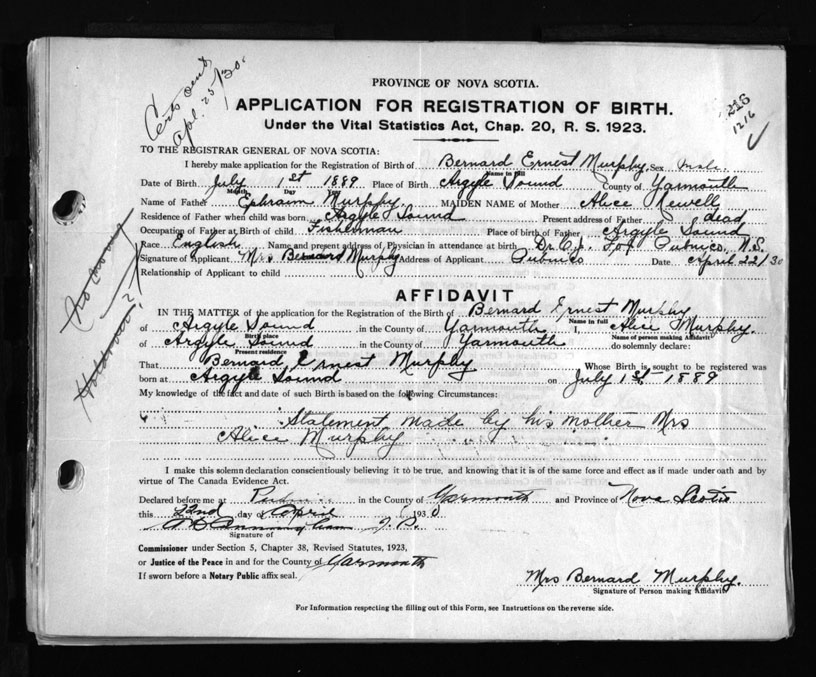 Certs sent
Apl. 25/30.
216
1216
PROVINCE OF NOVA SCOTIA.
APPLICATION FOR REGISTRATION OF BIRTH.
Under the Vital Statistics Act, Chap. 20, R. S. 1923.
TO THE REGISTRAR GENERAL OF NOVA SCOTIA:
I hereby make application for the Registration of Birth of Bernard Ernest Murphy Sex Male.
Name in full
Date of Birth July 1st 1889 Place of Birth Argyle Sound County of Yarmouth
Month Day
Name of Father Ephraim Murphy. MAIDEN NAME of Mother Alice Newell
Residence of Father when child was born Argyle Sound Present address of Father dead
Occupation of Father at Birth of child Fisherman Place of birth of Father Argyle Sound
Race English Name and present address of Physician in attendance at birth Dr. C. J. Fox Pubnico, N.S.
Signature of Applicant Mrs Bernard Murphy Address of Applicant Pubnico Date April 22/30
Relationship of Applicant to child
AFFIDAVIT
IN THE MATTER of the application for the Registration of the Birth of Bernard Ernest Murphy
Name in full
of Argyle Sound in the County of Yarmouth I, Alice Murphy.
Birth place Name of person making Affidavit
of Argyle Sound in the County of Yarmouth do solemnly declare:
Present residence
That Bernard Ernest Murphy Whose Birth is sought to be registered was
born at Argyle Sound on July 1st 1889
My knowledge of the fact and date of such Birth is based on the following Circumstances:
Statement made by his mother Mrs
Alice Murphy
I make this solemn declaration conscientiously believing it to be true, and knowing that it is of the same force and effect as if made under oath and by
virtue of The Canada Evidence Act.
Declared before me at in the County of Yarmouth and Province of Nova Scotia
this 22nd day of April 1930
J. P.
Signature of
Commissioner under Section 5, Chapter 38, Revised Statutes, 1923,
or Justice of the Peace in and for the County of Yarmouth
If sworn before a Notary Public affix seal.
Mrs Bernard Murphy.
Signature of Person making Affidavit
For Information respecting the filling out of this Form, see Instructions on the reverse side.